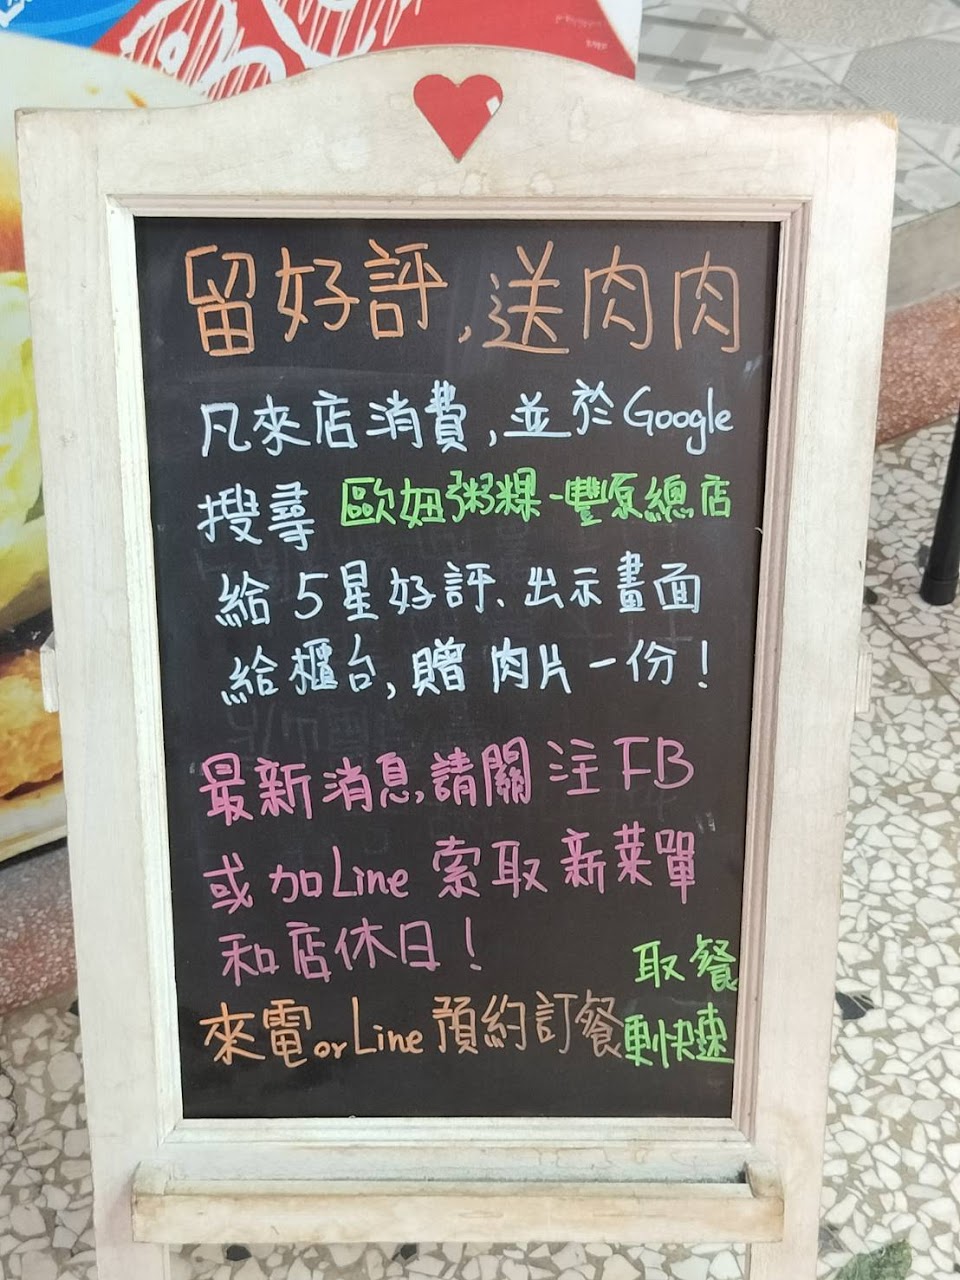 留好評,送肉肉
凡來店消費,並於Google
搜尋 歐妞粥粿-豐原總店
給5星好評、出示畫面
給櫃台,贈肉片一份!
最新消息,請關注FB
或加Line索取新菜單
和店休日!
來電orLine預約訂餐
取餐
更快速